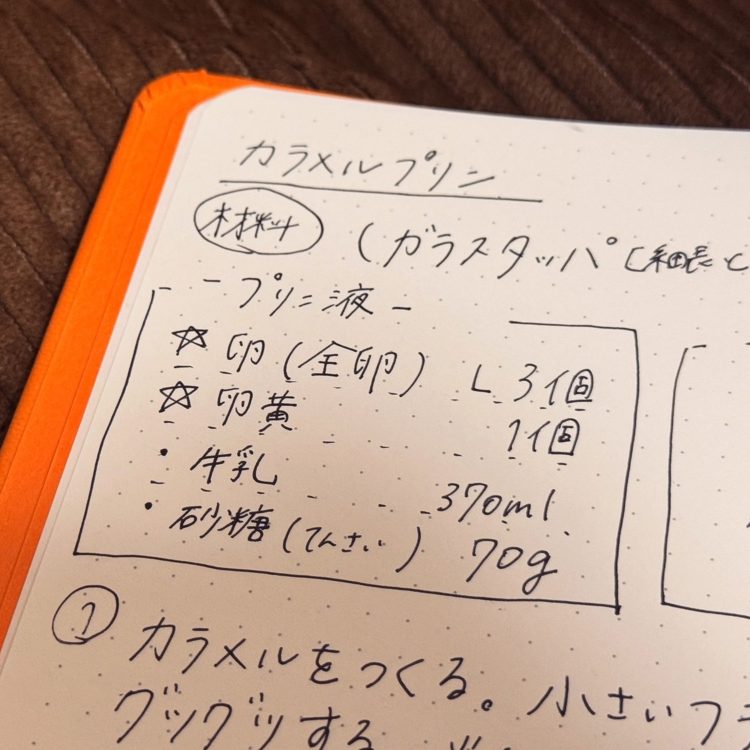 カラメルプリン
材料 (ガラスタッパ(細長
- プリン液 -
☆ 卵(全卵) L 3個
☆ 卵黄 1個
・ 牛乳 370ml
・ 砂糖(てんさい) 70g
① カラメルをつくる。小さいフラ
グツグツする